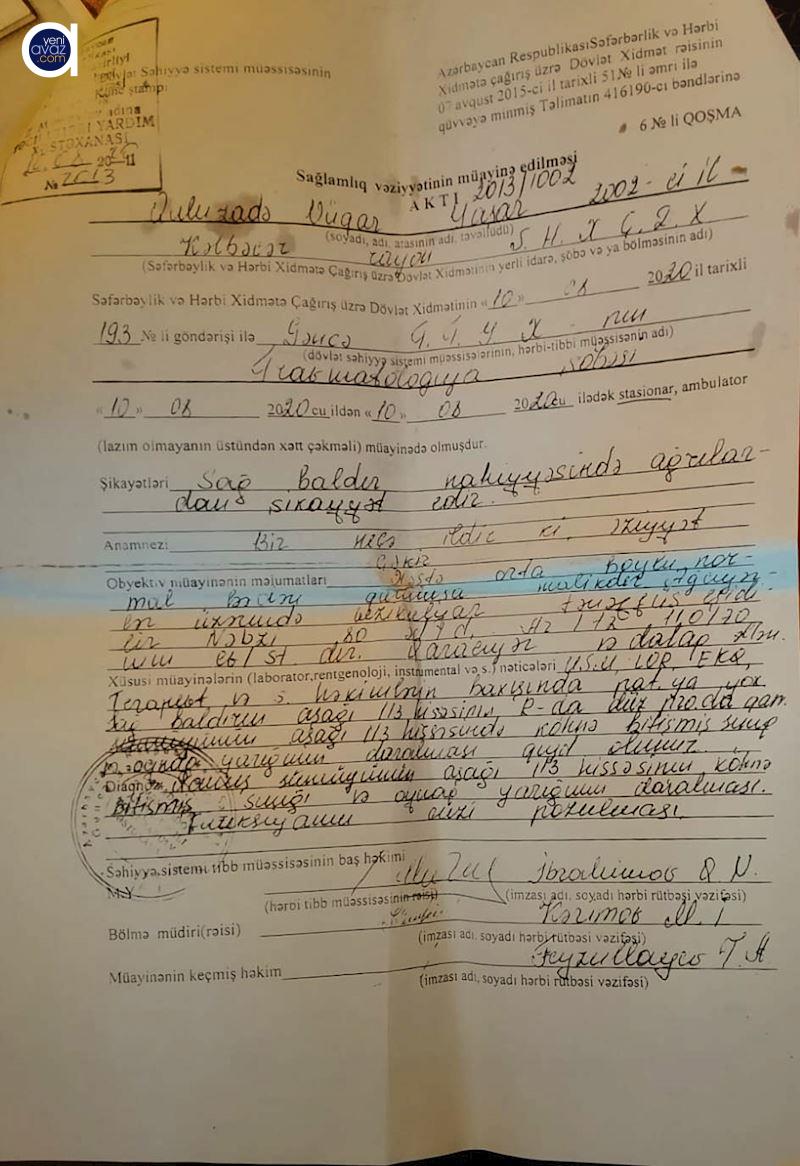 yeni
avaz
.com
Səhiyyə sistemi müəssisəsinin
Künc ştampı
YARDIM
XƏSTƏXANASI
№ 2013
Azərbaycan Respublikası Səfərbərlik və Hərbi
Xidmətə çağırış üzrə Dövlət Xidmət rəisinin
07 avqust 2015-ci il tarixli 51№ li əmri ilə
qüvvəyə minmiş Təlimatın 416190-cı bəndlərinə
6 № li QOŞMA
Sağlamlıq vəziyyətinin müayinə edilməsi
AKTI 2013/1002
Quluzadə Vüqar Yaşar 2002-ci il
(soyadı, adı, atasının adı, təvəllüdü)
Kəlbəcər rayon S. H. X. Ç. D. X
(Səfərbəylik və Hərbi Xidmətə Çağırış üzrə Dövlət Xidmətinin yerli idarə, şöbə və ya bölməsinin adı)
Səfərbəylik və Hərbi Xidmətə Çağırış üzrə Dövlət Xidmətinin « 10 » 08 2020 il tarixli
193 № li göndərişi ilə Gəncə
(dövlət səhiyyə sistemi müəssisələrinin, hərbi-tibbi müəssisənin adı)
Travmatologiya şöbəsi
« 10 » 08 2020 cu ildən « 10 » 08 2020 cu ilədək stasionar, ambulator
(lazım olmayanın üstündən xətt çəkməli) müayinədə olmuşdur.
Şikayətləri Sağ baldır nahiyyəsində ağrılar-
dan şikayyət edir.
Anamnezi Bir neçə ildir ki, əziyyət
çəkir
Obyektiv müayinənin məlumatları Xəstə orta boylu, nor-
mal bədən quruluşa malikdir. Ağciyər-
lər üzərində vezikulyar tənəffüs eşidi-
lir Nəbzi 80 A/T 110/70
mm c/st. dir. Qaraciyər və dalaq
Xüsusi müayinələrin (laborator, rentgenoloji, instrumental və s.) nəticələri U.S.M, LOR, EKQ,
Terapevt və s. həkimlərin baxışında pat.ya yox
Sağ baldırın aşağı 1/3 hissəsinin R-da düz proda qam
aşağı 1/3 hissəsində köhnə bitişmiş sınığ
oynaq yarığının daralması qeyd olunur.
Diaqnoz: Qamış sümüyünün aşağı 1/3 hissəsinin köhnə
bitişmiş sınığı və oynaq yarığının daralması.
Funksiyanın cüzi pozulması.
Səhiyyə sistemi tibb müəssisəsinin baş həkimi İbrahimov Q N.
M.Y (hərbi tibb müəssisəsinin rəisi) (imzası adı, soyadı hərbi rütbəsi vəzifəsi)
Bölmə müdiri(rəisi) Kərimov M. İ
(imzası adı, soyadı hərbi rütbəsi vəzifəsi)
Müayinənin keçmiş həkim Feyzullayev T. A
(imzası adı, soyadı hərbi rütbəsi vəzifəsi)